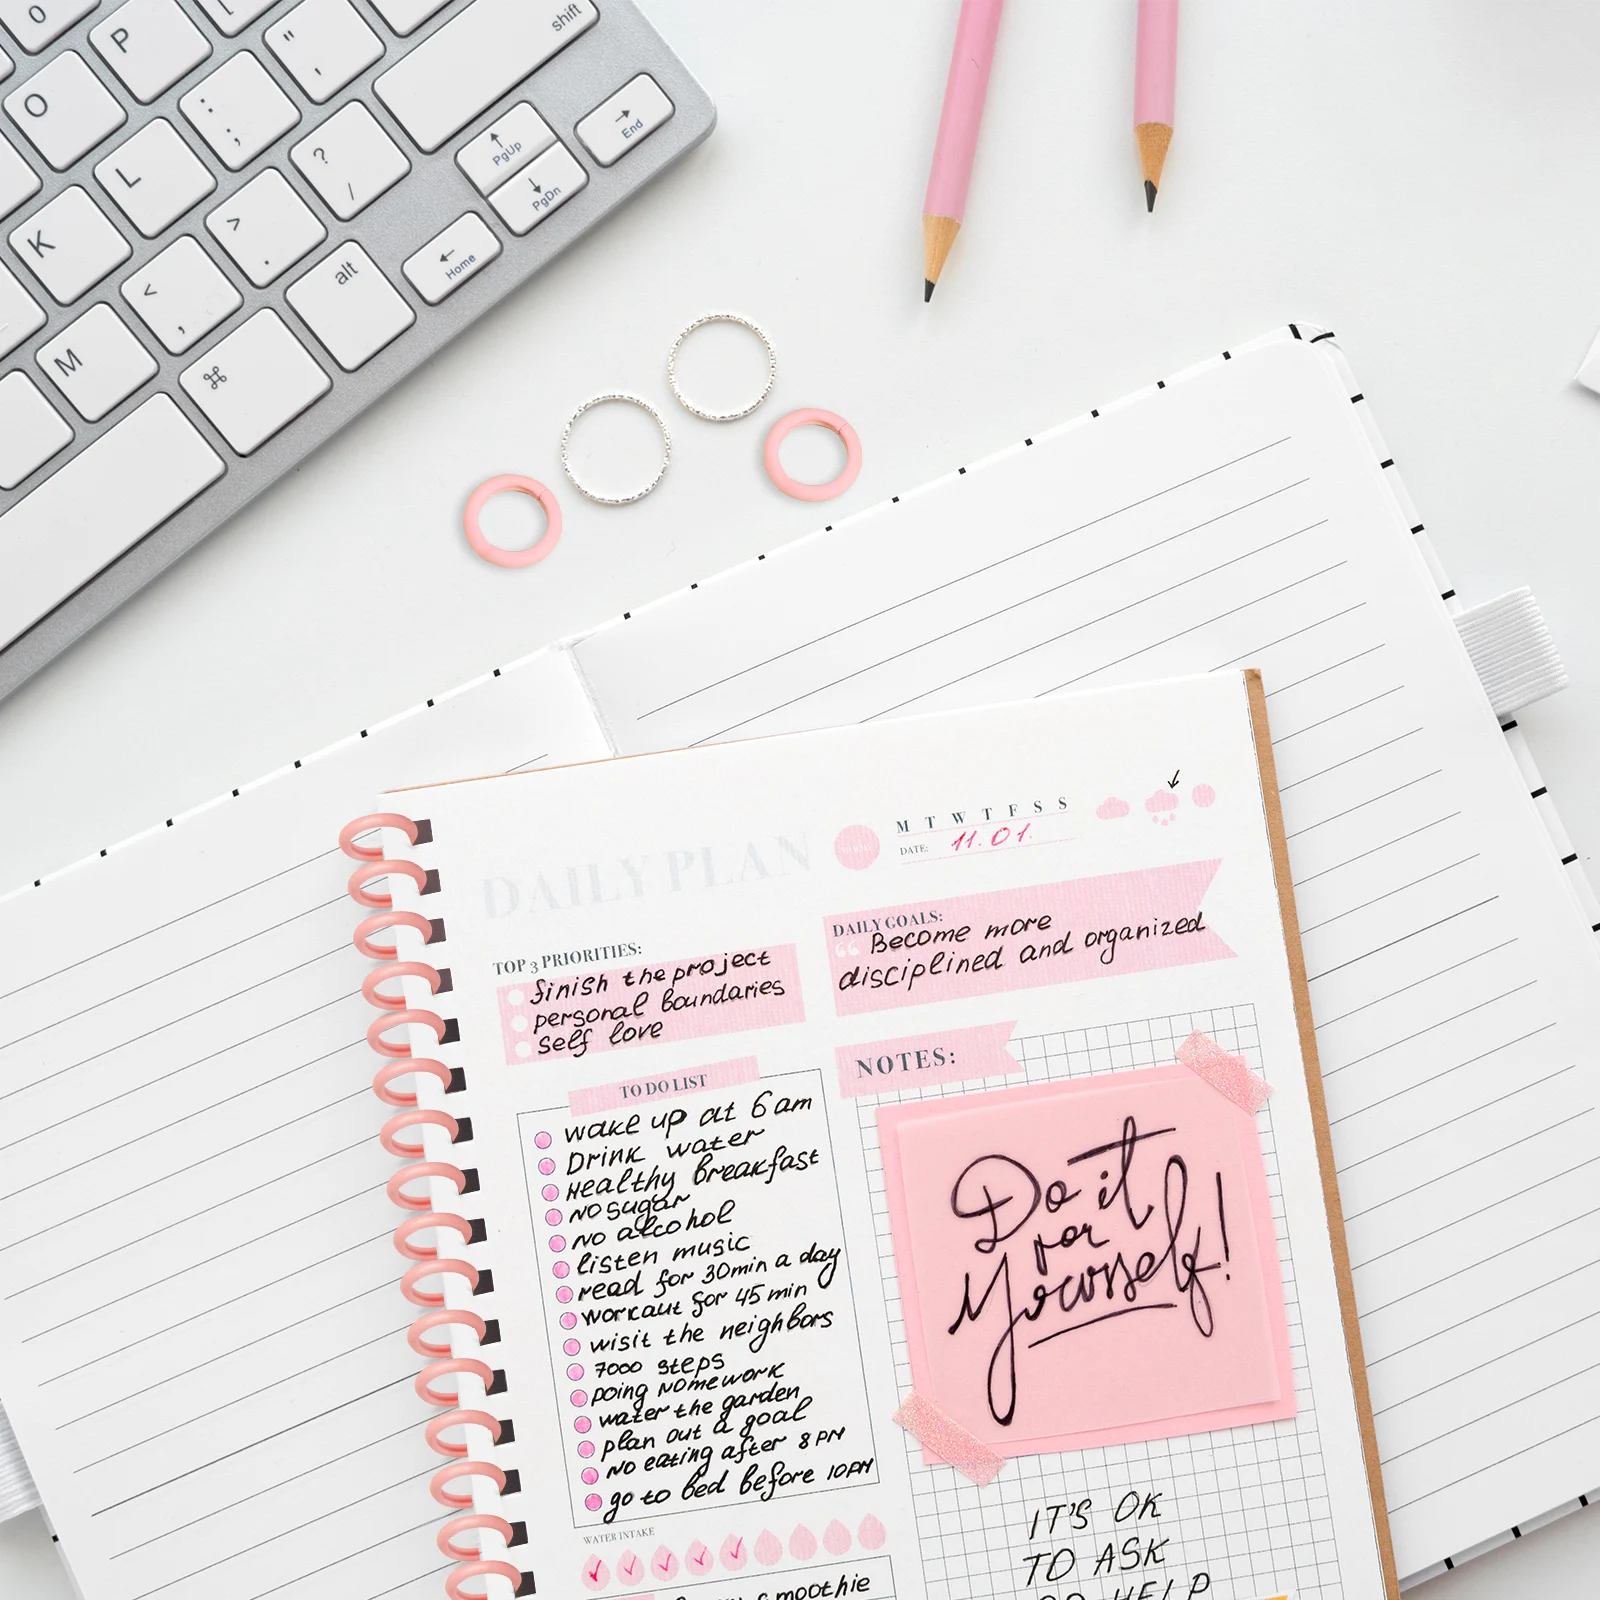 0
P
[
"
'
shift
O
:
;
?
/
PgUp
PgDn
End
L
>
.
K
<
,
alt
Home
M
⌘
DAILY PLAN
M T W T F S S
DATE: 11.01.
TOP 3 PRIORITIES:
finish the project
personal boundaries
self love
DAILY GOALS:
“ Become more
disciplined and organized
TO DO LIST
wake up at 6 am
Drink water
Healthy breakfast
NO sugar
NO alcohol
listen music
read for 30min a day
workout for 45 min
wisit the neighbors
7000 steps
Doing Nomework
water the garden
plan out a goal
NO eating after 8 PM
go to bed before 10PM
WATER INTAKE
smoothie
NOTES:
Do it
for
Yourself!
IT'S OK
TO ASK
HELP